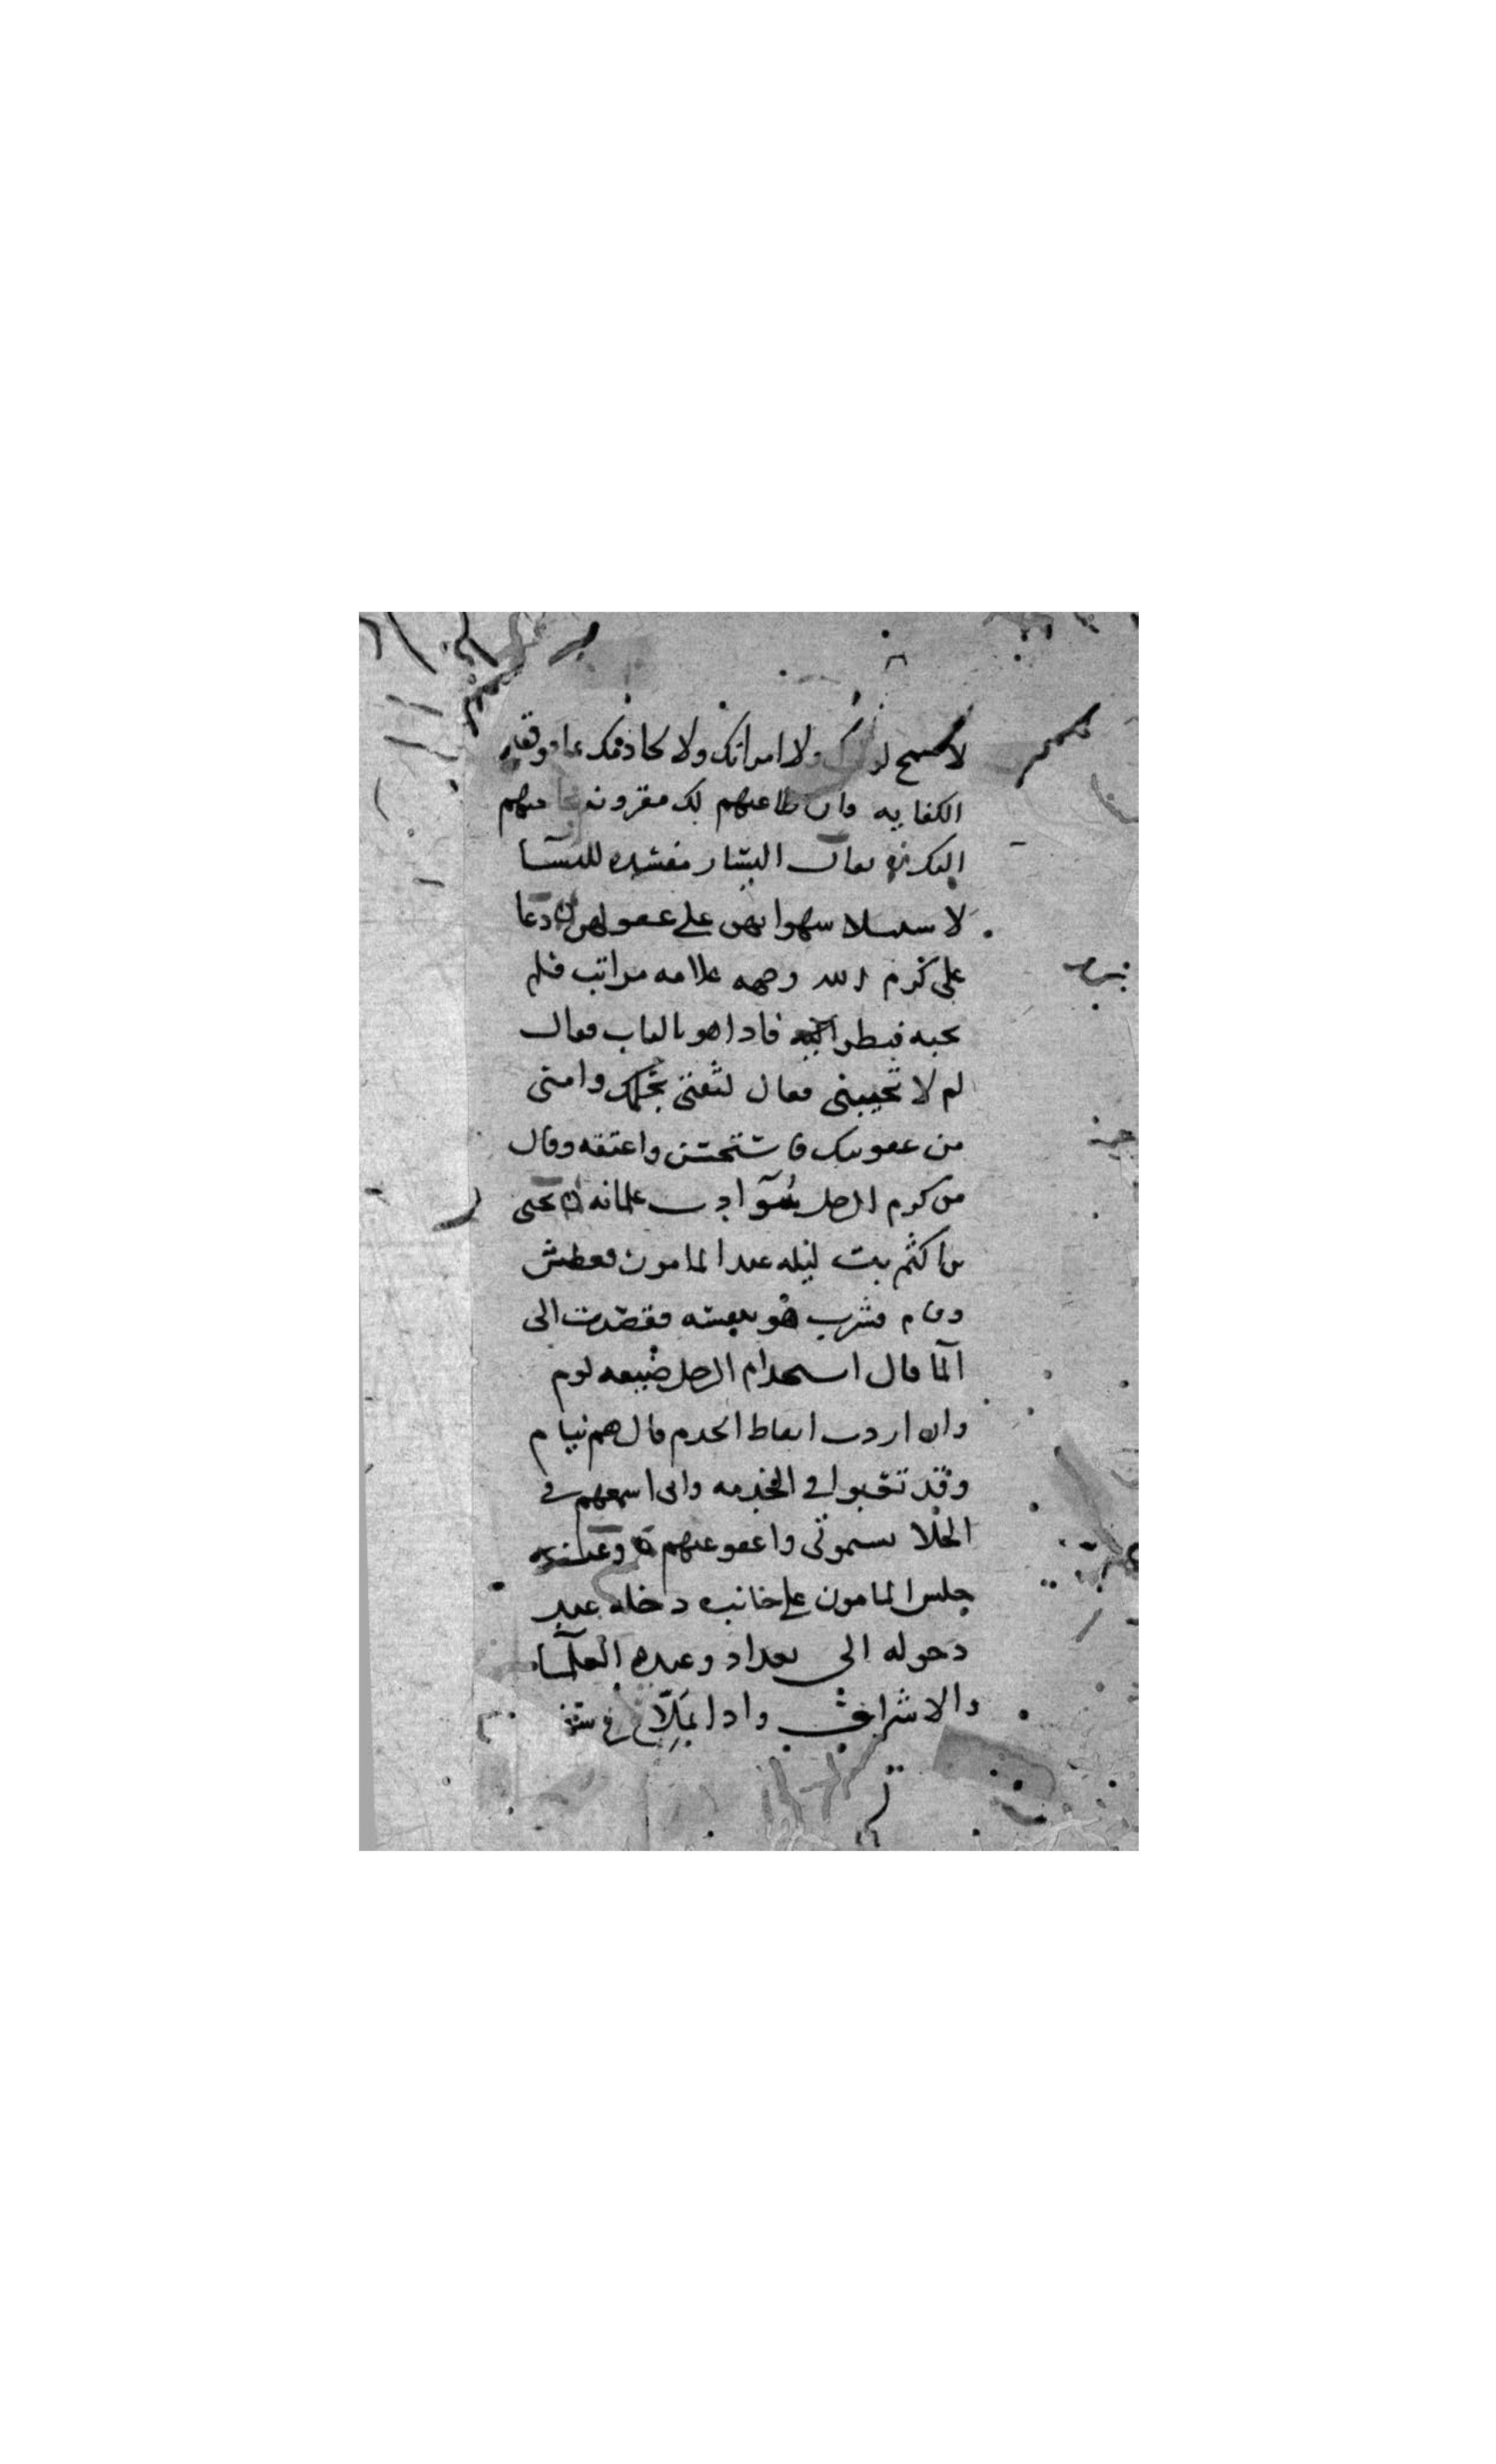 لا تسمح لولدك ولا امراتك ولا لخادمك بما فوق
الكفايه وان طاعتهم لك مقرونه بحاجتهم
اليك يقال اليسار مفسده للنسا
لاستيلا شهواتهن على عقولهن دعا
على كرم الله وجهه غلامه مراتب فلم
يجبه فنظر اليه فاذا هو بالباب فقال
لم لا تجيبنى فقال لثقتى بحلمك وامنى
من عقوبتك فاستحسن واعتقه وقال
من كرم الرجل سوٓ ادب غلمانه يحيى
بن اكثم بت ليله عند المامون فعطش
وقام فشرب هو بنفسه فقصدت الى
المآ قال استخدام الرجل ضيفه لوم
وان اردت ايقاظ الخدم قال هم نيام
وقد تعبوا فى الخدمه وانى اسمعهم فى
الخلا يشتمونى واعفو عنهم
جلس المامون على جانب دجله عند
دخوله الى بغداد وعنده العلمآ
والاشراف واذا بملاح فى